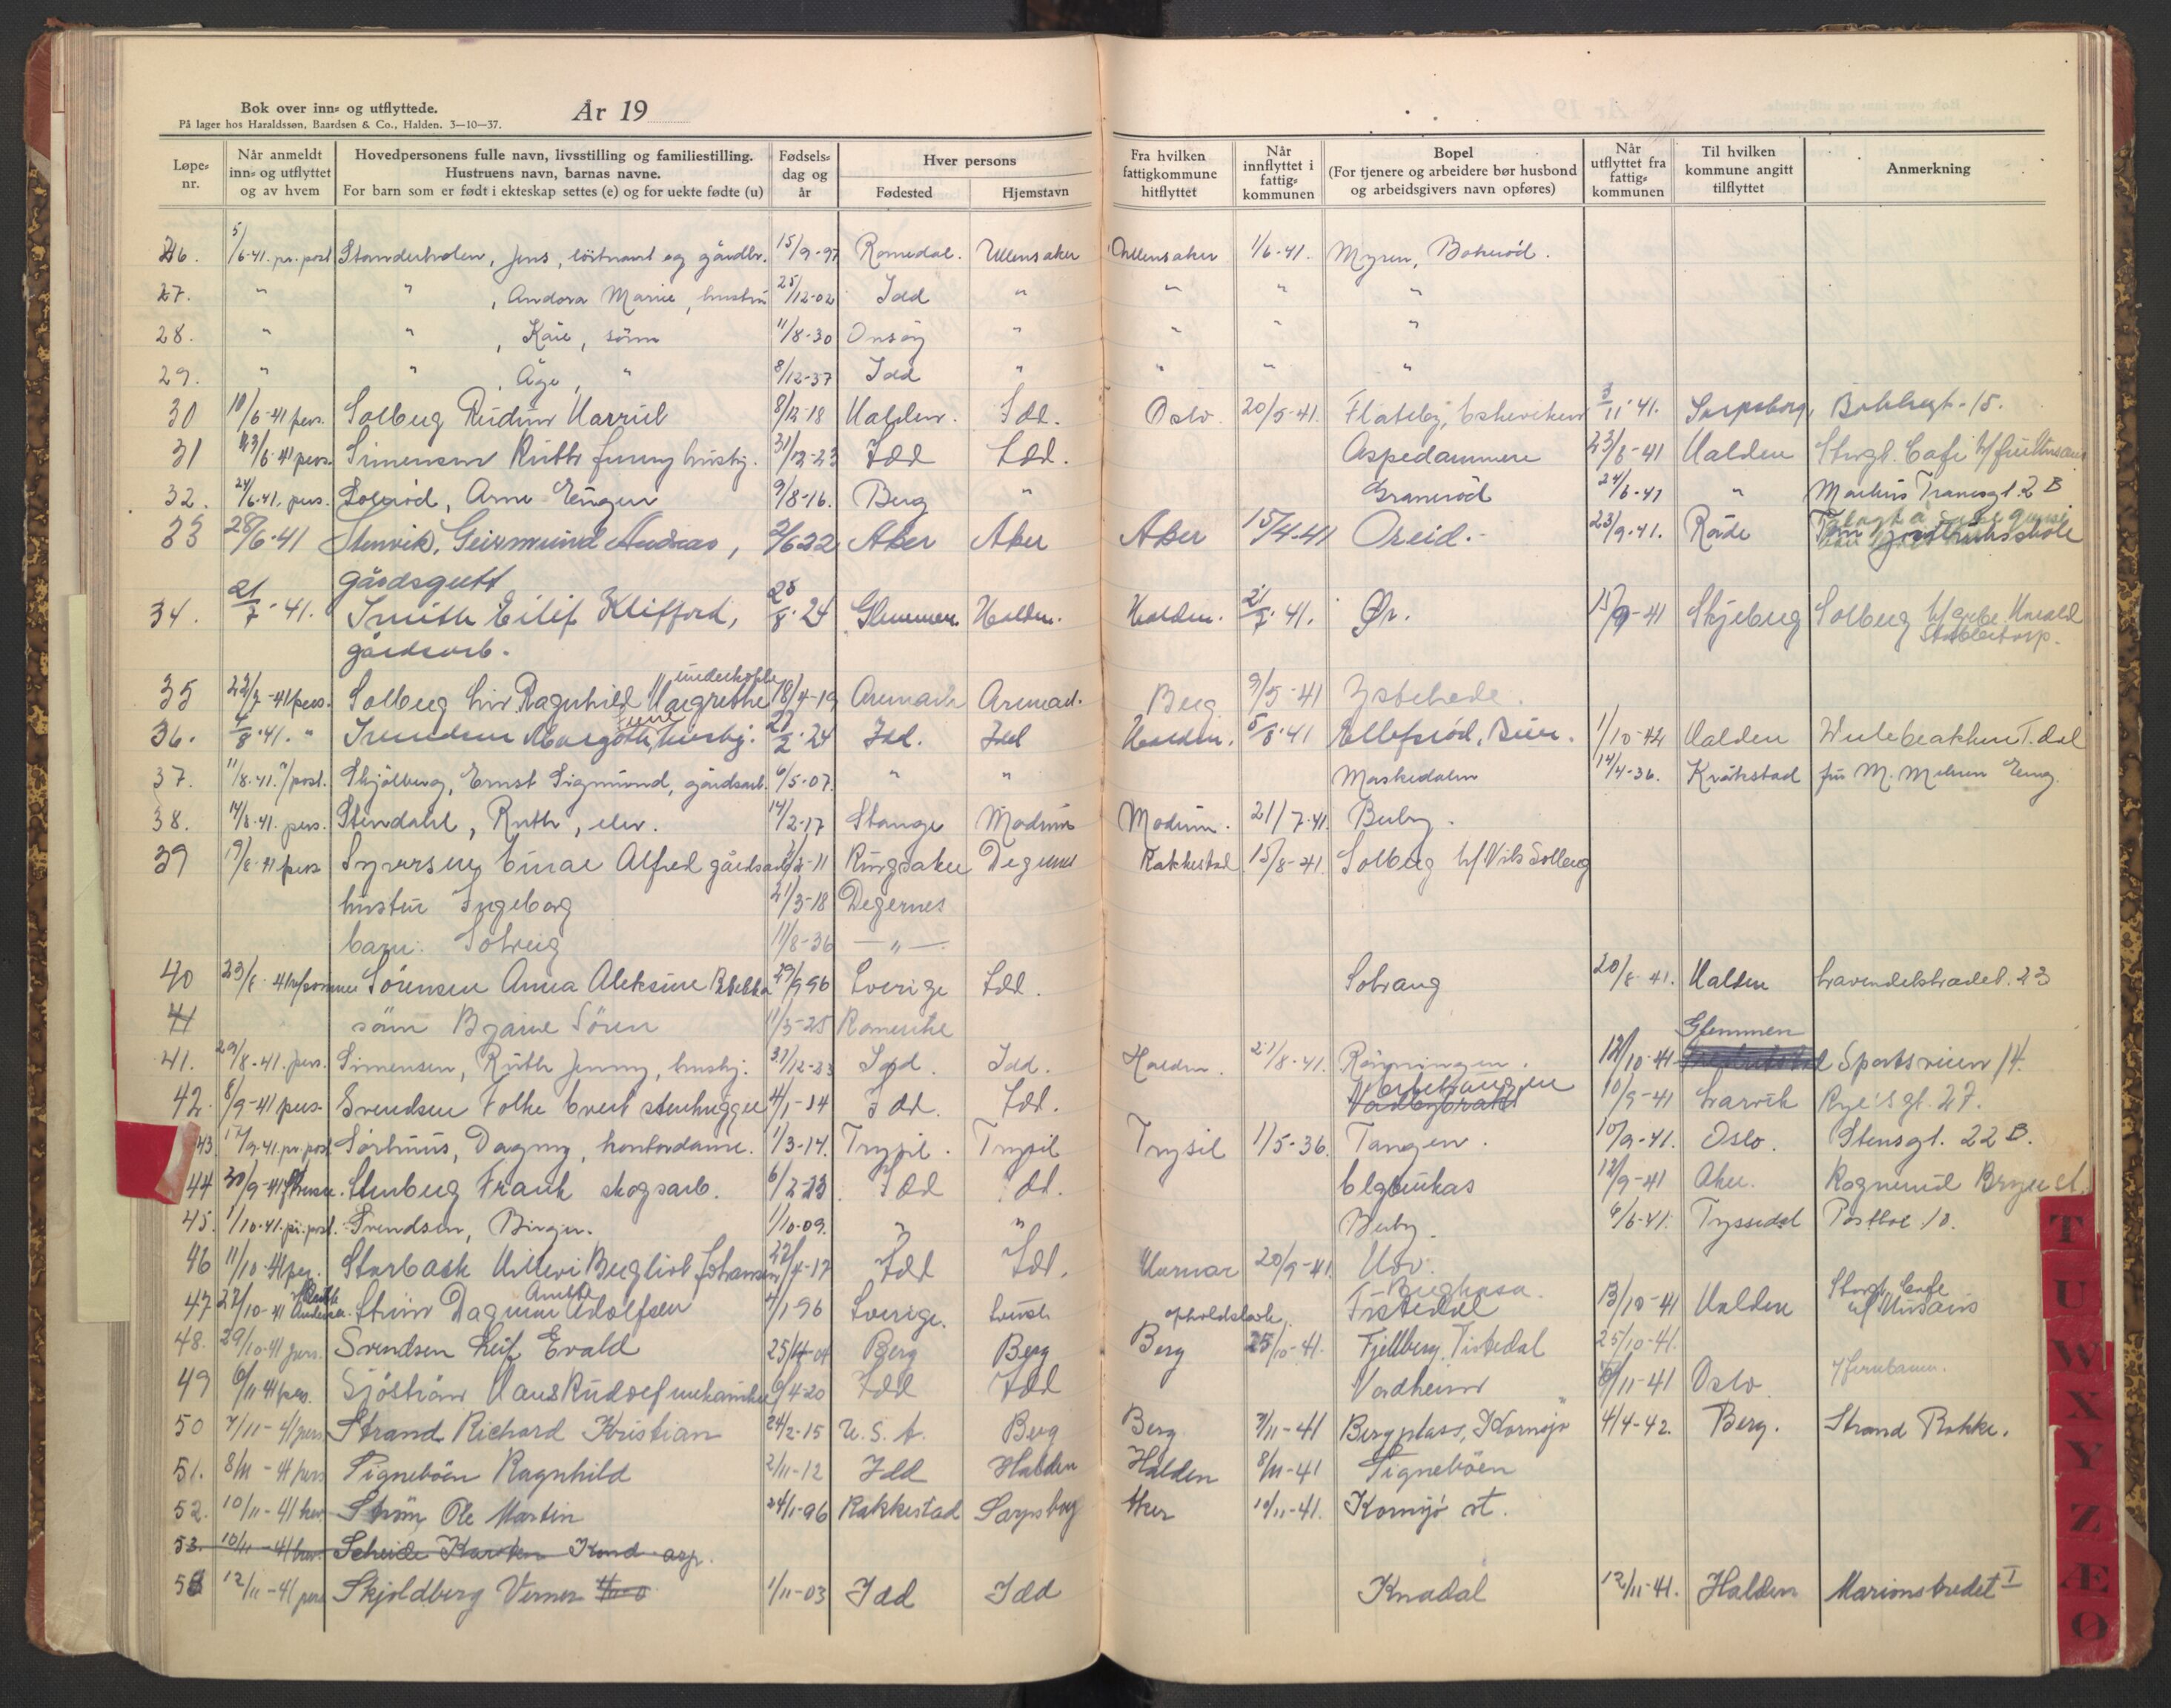 Bok over inn- og utflyttede.
På lager hos Haraldssøn, Baardsen & Co., Halden. 3—10—37.
År 19
Løpe-nr.
Når anmeldt inn- og utflyttet og av hvem
Hovedpersonens fulle navn, livsstilling og familiestilling.
Hustruens navn, barnas navne.
For barn som er født i ekteskap settes (e) og for uekte fødte (u)
Fødsels-dag og år
Hver persons
Fødested
Hjemstavn
Fra hvilken fattigkommune hitflyttet
Når innflyttet i fattig-kommunen
Bopel
(For tjenere og arbeidere bør husbond og arbeidsgivers navn opføres)
Når utflyttet fra fattig-kommunen
Til hvilken kommune angitt tilflyttet
Anmerkning
26. 5/6-41. pr. post Standerholen, Jens, löitnant og gårdbr. 15/9-97 Romedal. Ullensaker Ullensaker 1/6-41. Myren, Bakeröd.
27. " " , Andora Marie, hustru 25/12-02 Idd " " " "
28. " " , Kåre, sönn 11/8-30 Onsöy " " " "
29. " " , Åge, " 8/12-37 Idd " " " "
30 10/6-41 pers. Solberg Reidun Harriet 8/12-18 Halden. Idd. Oslo 20/5-41. Flateby, 3/11-41. Sarpsborg,
31 23/6-41 pers. Simensen Ruth Jenny hushj. 31/12-23 Idd Idd. Aspedammen 23/6-41 Halden Storgt. Cafe
32. 24/6-41. pers. Solröd, Arne Eugen 9/8-16. Berg " Graneröd 24/6-41 " Markus Tranesgt. 2 B
33 28/6-41 Stenvik, Geirmund Andreas, 2/6 22 Aker Aker Aker 15/4-41 Oreid. 23/9-41. Råde
gårdsgutt
34. 21/7-41. Smith Eilif Klifford, 28/8-24 Glemmen Halden. Halden. 21/7-41. Ør. 15/9-41 Skjeberg Solberg
gårdsarb.
35 22/7-41 pers. Solberg Liv Ragnhild Margrethe 18/4-19 Aremark Aremark. Berg 9/5-41 Ystehede.
36. 4/8-41. " hushj. 22/2-24 Idd. Idd Halden. 5/8-41 Ellefsröd, 1/10-42 Halden T.dal
37. 11/8-41. /post. Skjölberg, Ernst Sigmund, gårdsarb. 6/5-07. " " Maskedalen 14/4-36. Kråkstad fru M.
38. 14/8-41. pers. Stendahl, Ruth, elev. 14/2-17 Stange Modum Modum. 21/7-41. Buby.
39 19/8-41 pers Syversen Einar Alfred gårdsarb. Ringsaker Degernes Rakkestad 15/8-41 Solberg h/Nils Solberg
hustru Ingeborg 21/3-18 Degernes
barn: Solveig 11/8-36 —"—
40 23/8-41 Sörensen Anna Aleksine 29/9 96 Sverige Idd. Solvang 20/8-41. Halden Lavendelstredet. 23
41 sönn Bjarne Sören 11/3-25 Romerike
41. 29/8-41. pers. Simensen, Ruth Jenny, hushj. 31/12-23 Idd. Idd. Halden. 21/8-41. Rönningen. 12/10-41 Glemmen Sportsveien 14.
42. 8/9-41 pers. Svendsen Folke Evert stenhugger 4/1-14 Idd. Idd. 10/9-41 Larvik Rye's gt. 27.
43. 17/9-41. pr. post Sörhuus, Dagny, kontordame. 1/3-14. Trysil. Trysil Trysil 1/5-36. Tangen. 10/9-41. Oslo. Stensgt. 22 B.
44 30/9-41 Stenberg Frank skogsarb. 6/2-23. Idd Idd. Elgbukas 12/9-41 Aker. Rognerud
45. 1/10-41. pr. post. Svendsen, Birger. 1/10-09. " " Buby. 6/6-41. Tyssedal Postbox 10.
46 11/10-41 per. Starbäck Johansen 22/4-17 Idd Idd. Hurnar 20/9-41 Hov.
47 22/10-41 Ström Dagmar Adolfsen 4/1-96 Sverige. Tistedal 13/10-41 Halden Storgt. Cafe
48. 29/10-41 pers. Svendsen Leif Evald Berg Berg Berg 25/10-41. Fjellberg. Tistedal 25/10-41.
49 6/11 41 pers. Sjöström Hans Rudolf mekaniker 6/4-20 Idd Idd Vadheim 11-41 Oslo.
50 7/11-41 pers Strand Richard Kristian 24/2-15 U.S.A. Berg Berg 7/11-41 Bergplass, Kornsjö 4/4-42. Berg. Strand Rokke.
51. 8/11-41 pers Signebøen Ragnhild 2/11-12 Idd Halden Halden 8/11-41 Signebøen
52. 10/11-41 Ström Ole Martin 24/1-96 Rakkestad Sarpsborg 10/11-41. Kornsjö st.
53. 10/11-41 Scheide Karsten Kond. asp.
53 12/11-41 pers Skjoldberg Verner 1/11-03 Idd Idd Knadal 12/11-41. Halden Marionstredet I
T
U
W
X
Y
Z
Æ
Ø